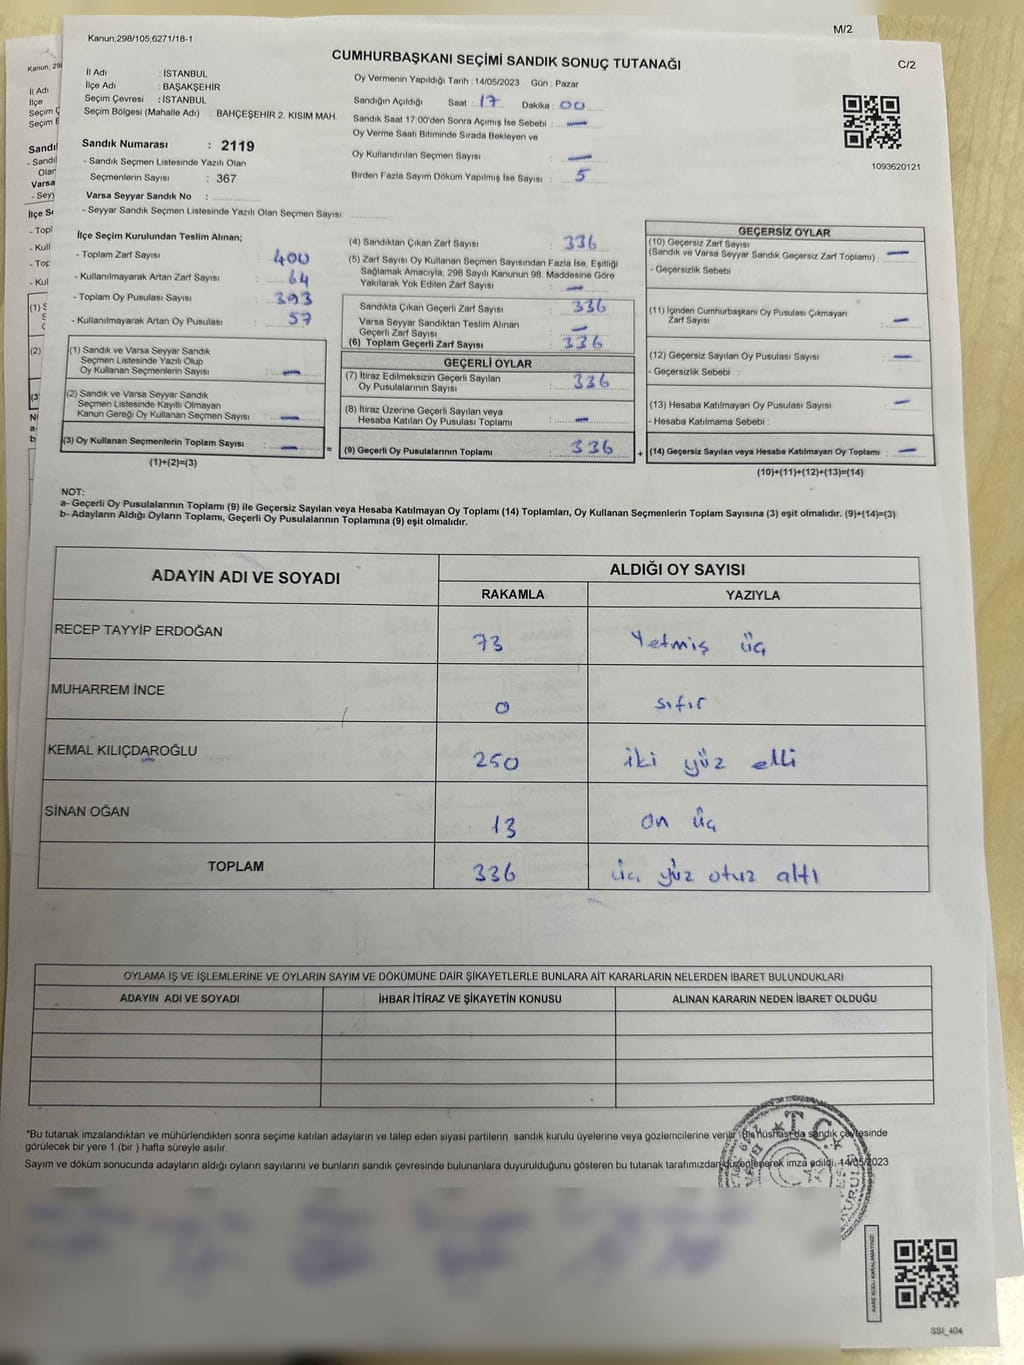 M/2
Kanun;298/105,6271/18-1
CUMHURBAŞKANI SEÇİMİ SANDIK SONUÇ TUTANAĞI
C/2
İl Adı : İSTANBUL
İlçe Adı : BAŞAKŞEHİR
Seçim Çevresi : İSTANBUL
Seçim Bölgesi (Mahalle Adı) : BAHÇEŞEHİR 2. KISIM MAH.
Sandık Numarası : 2119
- Sandık Seçmen Listesinde Yazılı Olan
Seçmenlerin Sayısı : 367
Varsa Seyyar Sandık No :
- Seyyar Sandık Seçmen Listesinde Yazılı Olan Seçmen Sayısı:
Oy Vermenin Yapıldığı Tarih : 14/05/2023 Gün : Pazar
Sandığın Açıldığı Saat : 17 Dakika : 00
Sandık Saat 17:00'den Sonra Açımış İse Sebebi : —
Oy Verme Saati Bitiminde Sırada Bekleyen ve
Oy Kullandırılan Seçmen Sayısı : —
Birden Fazla Sayım Döküm Yapılmış İse Sayısı : 5
1093620121
İlçe Seçim Kurulundan Teslim Alınan;
- Toplam Zarf Sayısı : 400
- Kullanılmayarak Artan Zarf Sayısı : 64
- Toplam Oy Pusulası Sayısı : 393
- Kullanılmayarak Artan Oy Pusulası : 57
(1) Sandık ve Varsa Seyyar Sandık
Seçmen Listesinde Yazılı Olup
Oy Kullanan Seçmenlerin Sayısı : —
(2) Sandık ve Varsa Seyyar Sandık
Seçmen Listesinde Kayıtlı Olmayan
Kanun Gereği Oy Kullanan Seçmen Sayısı : —
(3) Oy Kullanan Seçmenlerin Toplam Sayısı : —
(1)+(2)=(3)
(4) Sandıktan Çıkan Zarf Sayısı : 336
(5) Zarf Sayısı Oy Kullanan Seçmen Sayısından Fazla İse, Eşitliği
Sağlamak Amacıyla; 298 Sayılı Kanunun 98. Maddesine Göre
Yakılarak Yok Edilen Zarf Sayısı : —
Sandıkta Çıkan Geçerli Zarf Sayısı : 336
Varsa Seyyar Sandıktan Teslim Alınan
Geçerli Zarf Sayısı : —
(6) Toplam Geçerli Zarf Sayısı : 336
GEÇERLİ OYLAR
(7) İtiraz Edilmeksizin Geçerli Sayılan
Oy Pusulalarının Sayısı : 336
(8) İtiraz Üzerine Geçerli Sayılan veya
Hesaba Katılan Oy Pusulası Toplamı : —
= (9) Geçerli Oy Pusulalarının Toplamı : 336 +
GEÇERSİZ OYLAR
(10) Geçersiz Zarf Sayısı
(Sandık ve Varsa Seyyar Sandık Geçersiz Zarf Toplamı) : —
- Geçersizlik Sebebi :
(11) İçinden Cumhurbaşkanı Oy Pusulası Çıkmayan
Zarf Sayısı : —
(12) Geçersiz Sayılan Oy Pusulası Sayısı : —
- Geçersizlik Sebebi :
(13) Hesaba Katılmayan Oy Pusulası Sayısı : —
- Hesaba Katılmama Sebebi :
(14) Geçersiz Sayılan veya Hesaba Katılmayan Oy Toplamı : —
(10)+(11)+(12)+(13)=(14)
NOT:
a- Geçerli Oy Pusulalarının Toplamı (9) ile Geçersiz Sayılan veya Hesaba Katılmayan Oy Toplamı (14) Toplamları, Oy Kullanan Seçmenlerin Toplam Sayısına (3) eşit olmalıdır. (9)+(14)=(3)
b- Adayların Aldığı Oyların Toplamı, Geçerli Oy Pusulalarının Toplamına (9) eşit olmalıdır.
ADAYIN ADI VE SOYADI ALDIĞI OY SAYISI
RAKAMLA YAZIYLA
RECEP TAYYİP ERDOĞAN 73 Yetmiş üç
MUHARREM İNCE 0 sıfır
KEMAL KILIÇDAROĞLU 250 iki yüz elli
SİNAN OĞAN 13 on üç
TOPLAM 336 üç yüz otuz altı
OYLAMA İŞ VE İŞLEMLERİNE VE OYLARIN SAYIM VE DÖKÜMÜNE DAİR ŞİKAYETLERLE BUNLARA AİT KARARLARIN NELERDEN İBARET BULUNDUKLARI
ADAYIN ADI VE SOYADI İHBAR İTİRAZ VE ŞİKAYETİN KONUSU ALINAN KARARIN NEDEN İBARET OLDUĞU
*Bu tutanak imzalandıktan ve mühürlendikten sonra seçime katılan adayların ve talep eden siyasi partilerin sandık kurulu üyelerine veya gözlemcilerine verilir. Bir nüshası da sandık çevresinde
görülecek bir yere 1 (bir ) hafta süreyle asılır.
Sayım ve döküm sonucunda adayların aldığı oyların sayılarını ve bunların sandık çevresinde bulunanlara duyurulduğunu gösteren bu tutanak tarafımızdan düzenlenerek imza edildi. 14/05/2023
T.C.
KARE KODU KARALAMAYINIZ!
SSI_404